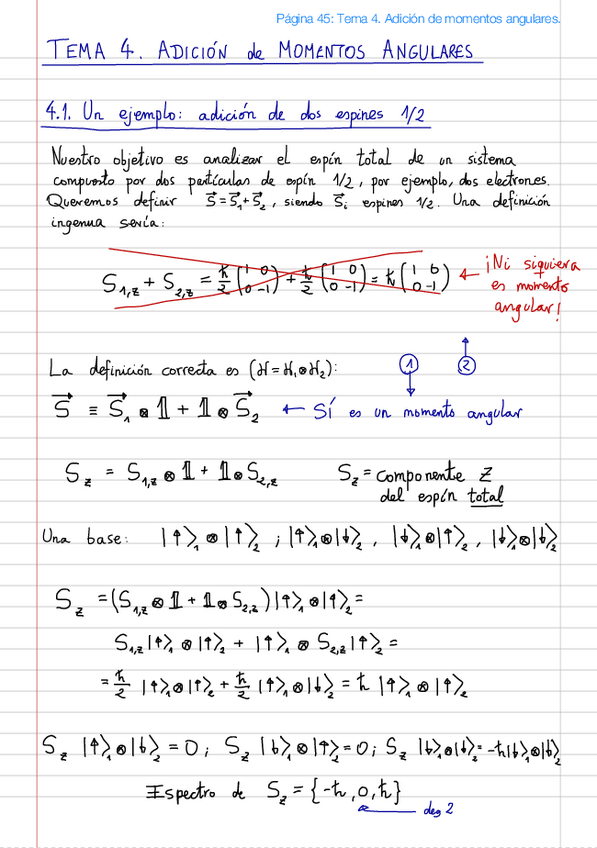 Página 45: Tema 4. Adición de momentos angulares.
TEMA 4. ADICIÓN de MOMENTOS ANGULARES
4.1. Un ejemplo: adición de dos espines 1/2
Nuestro objetivo es analizar el espín total de un sistema
compuesto por dos partículas de espín 1/2, por ejemplo, dos electrones.
Queremos definir S⃗=S⃗₁+S⃗₂, siendo S⃗ᵢ espines 1/2. Una definición
ingenua sería:
S₁,z + S₂,z = ħ/2 (1 0; 0 -1) + ħ/2 (1 0; 0 -1) = ħ (1 0; 0 -1) ← ¡Ni siquiera
es momento
angular!
La definición correcta es (ℋ=ℋ₁⊗ℋ₂): 1 2
S⃗ ≡ S⃗₁ ⊗ 𝟙 + 𝟙 ⊗ S⃗₂ ← SÍ es un momento angular
S_z = S₁,z ⊗ 𝟙 + 𝟙 ⊗ S₂,z S_z = componente z
del espín total
Una base: |↑⟩₁⊗|↑⟩₂ ; |↑⟩₁⊗|↓⟩₂ , |↓⟩₁⊗|↑⟩₂ , |↓⟩₁⊗|↓⟩₂
S_z =(S₁,z ⊗ 𝟙 + 𝟙 ⊗ S₂,z)|↑⟩₁⊗|↑⟩₂=
S₁,z|↑⟩₁ ⊗ |↑⟩₂ + |↑⟩₁ ⊗ S₂,z|↑⟩₂ =
= ħ/2 |↑⟩₁⊗|↑⟩₂ + ħ/2 |↑⟩₁⊗|↓⟩₂ = ħ |↑⟩₁⊗|↑⟩₂
S_z |↑⟩₁⊗|↓⟩₂ = 0 ; S_z |↓⟩₁⊗|↑⟩₂=0 ; S_z |↓⟩₁⊗|↓⟩₂=-ħ|↓⟩₁⊗|↓⟩₂
Espectro de S_z = {-ħ, 0, ħ}
deg 2